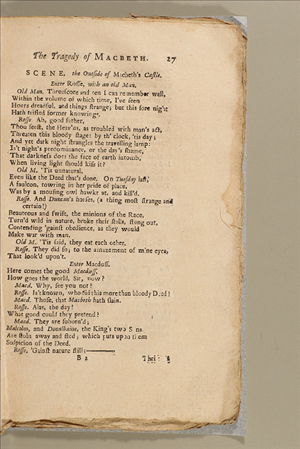 The Tragedy of MACBETH. 27
SCENE, the Outside of Macbeth's Castle.
Enter Rosse, with an old Man.
Old Man. Threescore and ten I can remember well,
Within the volume of which time, I've seen
Hours dreadful, and things strange; but this sore night
Hath trifled former knowings.
Rosse. Ah, good father,
Thou seest, the Heav'ns, as troubled with man's act,
Threaten this bloody stage: by th' clock, 'tis day;
And yet dark night strangles the travelling lamp:
Is't night's predominance, or the day's shame,
That darkness does the face of earth intomb,
When living light should kiss it?
Old M. 'Tis unnatural,
Even like the Deed that's done. On Tuesday last,
A faulcon, towring in her pride of place,
Was by a mousing owl hawkt at, and kill'd.
Rosse. And Duncan's horses, (a thing most strange and
certain!)
Beauteous and swift, the minions of the Race,
Turn'd wild in nature, broke their stalls, flung out,
Contending 'gainst obedience, as they would
Make war with man.
Old M. 'Tis said, they eat each other.
Rosse. They did so; to the amazement of mine eyes,
That look'd upon't.
Enter Macduff.
Here comes the good Macduff.
How goes the world, Sir, now?
Macd. Why, see you not?
Rosse. Is't known, who did this more than bloody Deed?
Macd. Those, that Macbeth hath slain.
Rosse. Alas, the day!
What good could they pretend?
Macd. They are suborn'd;
Malcolm, and Donalbaine, the King's two Sons
Are stoln away and fled; which puts upon them
Suspicion of the Deed.
Rosse. 'Gainst nature still;
B 2